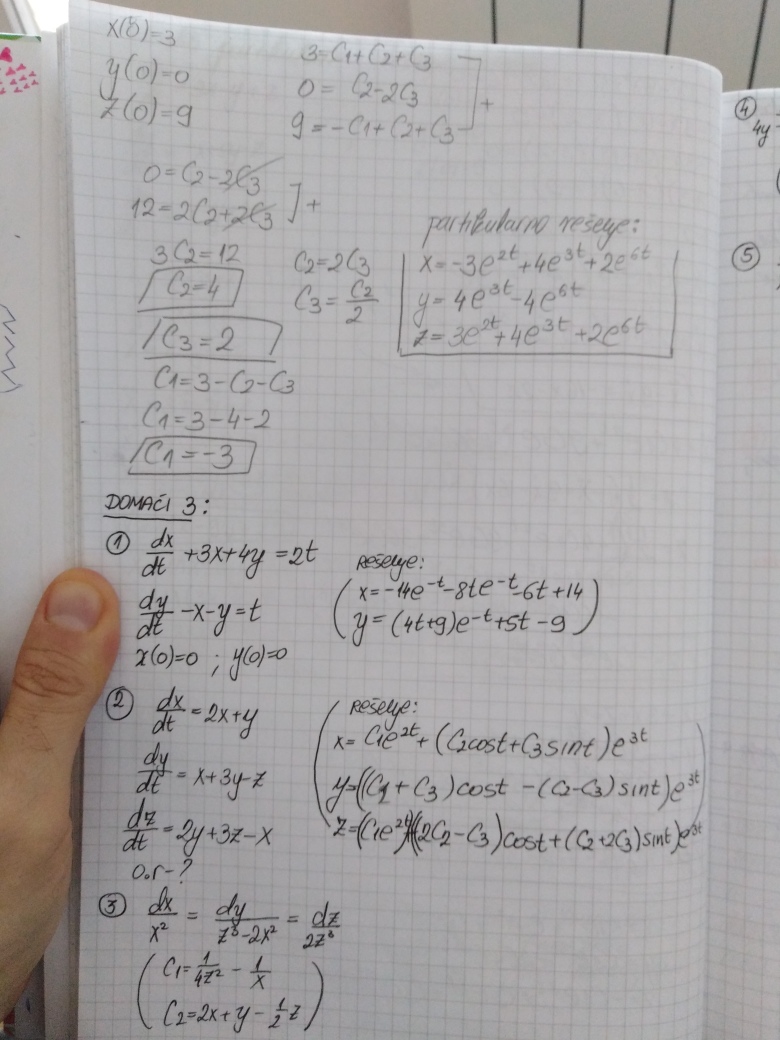 x(0)=3
y(0)=0
z(0)=9
3=C1+C2+C3
0= C2-2C3
9=-C1+C2+C3
+
0=C2-2C3
12=2C2+2C3
+
3C2=12
C2=4
C2=2C3
C3=C2/2
C3=2
C1=3-C2-C3
C1=3-4-2
C1=-3
partikularno rešenje:
x=-3e^2t+4e^3t+2e^6t
y=4e^3t-4e^6t
z=3e^2t+4e^3t+2e^6t
DOMAĆI 3:
① dx/dt +3x+4y=2t
dy/dt -x-y=t
x(0)=0 ; y(0)=0
Rešenje:
(x=-14e^-t-8te^-t-6t+14
y=(4t+9)e^-t+5t-9)
② dx/dt=2x+y
dy/dt=x+3y-z
dz/dt=2y+3z-x
o.r-?
Rešenje:
x=C1e^2t+(C2cost+C3sint)e^3t
y=((C2+C3)cost-(C2-C3)sint)e^3t
z=(C1e^2t)+((2C2-C3)cost+(C2+2C3)sint)e^3t
③ dx/x² = dy/z³-2x² = dz/2z³
(C1=1/4z² - 1/x
C2=2x+y-1/2z)
④
4y
⑤